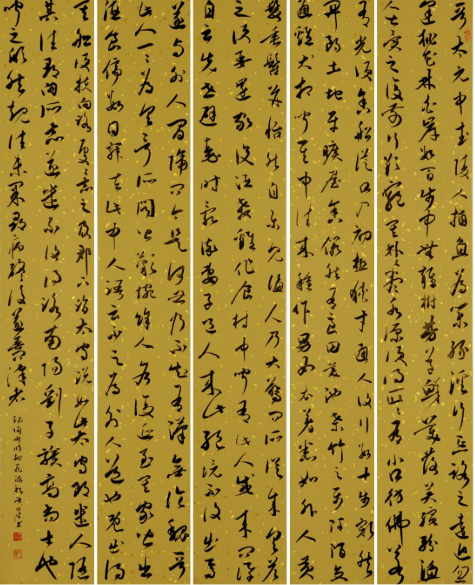 晉太元中武陵人捕魚為業緣溪行忘路之遠近忽
逢桃花林夾岸數百步中無雜樹芳草鮮美落英繽紛漁
人甚異之復前行欲窮其林林盡水源便得一山山有小口仿佛若
有光便舍船從口入初極狹才通人復行數十步豁然
開朗土地平曠屋舍儼然有良田美池桑竹之屬阡陌交
通雞犬相聞其中往來種作男女衣著悉如外人黃
髮垂髫並怡然自樂見漁人乃大驚問所從來具答
之便要還家設酒殺雞作食村中聞有此人咸來問訊
自云先世避秦時亂率妻子邑人來此絕境不復出焉
遂與外人間隔問今是何世乃不知有漢無論魏晉
此人一一為具言所聞皆歎惋餘人各復延至其家皆出
酒食停數日辭去此中人語云不足為外人道也既出得
其船便扶向路處處志之及郡下詣太守說如此太守即遣人隨
其往尋向所志遂迷不復得路南陽劉子驥高尚士也
聞之欣然規往未果尋病終後遂無問津者
陶淵明桃花源記